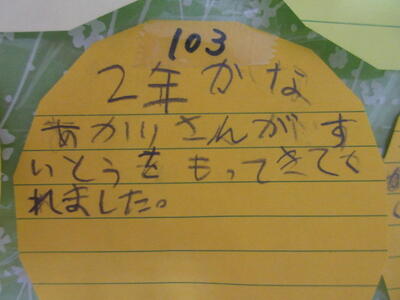 103
2年かな
あかりさんがす
いとうをもってきてく
れました。